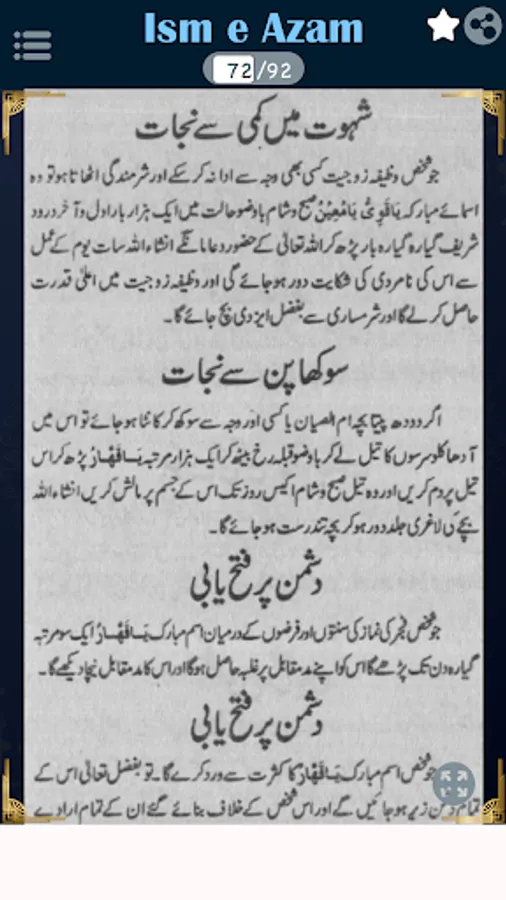 Ism e Azam
72/92
شہوت میں کمی سے نجات
جو شخص وظیفہ زوجیت کسی بھی وجہ سے ادا نہ کر سکے اور شرمندگی اٹھاتا ہو تو وہ
اسمائے مبارکہ یَا قَوِیُّ یَا مُعِیْنُ صبح و شام باوضو حالت میں ایک ہزار بار اول و آخر درود
شریف گیارہ گیارہ بار پڑھ کر اللہ تعالیٰ کے حضور دعا مانگے انشاء اللہ سات یوم کے عمل
سے اس کی نامردی کی شکایت دور ہو جائے گی اور وظیفہ زوجیت میں اعلیٰ قدرت
حاصل کرلے گا اور شرمساری سے بفضل ایزدی بچ جائے گا۔
سوکھا پن سے نجات
اگر دودھ پیتا بچہ ام الصبیان یا کسی اور وجہ سے سوکھ کر کانٹا ہو جائے تو اس میں
آدھا کلو سرسوں کا تیل لے کر باوضو قبلہ رخ بیٹھ کر ایک ہزار مرتبہ یَا قَهَّارُ پڑھ کر اس
تیل پر دم کریں اور وہ تیل صبح و شام اکیس روز تک اس کے جسم پر مالش کریں انشاء اللہ
بچے کی لاغری جلد دور ہو کر بچہ تندرست ہو جائے گا۔
دشمن پر فتح یابی
جو شخص فجر کی نماز کی سنتوں اور فرضوں کے درمیان اسم مبارک یَا قَهَّارُ ایک سو مرتبہ
گیارہ دن تک پڑھے گا اس کو اپنے مد مقابل پر غلبہ حاصل ہوگا اور اس کا مد مقابل نیچا دیکھے گا۔
دشمن پر فتح یابی
جو شخص اسم مبارک یَا قَهَّارُ کا کثرت سے ورد کرے گا۔ تو بفضل تعالیٰ اس کے
تمام دشمن زیر ہو جائیں گے اور اس شخص کے خلاف بنائے گئے ان کے تمام ارادے